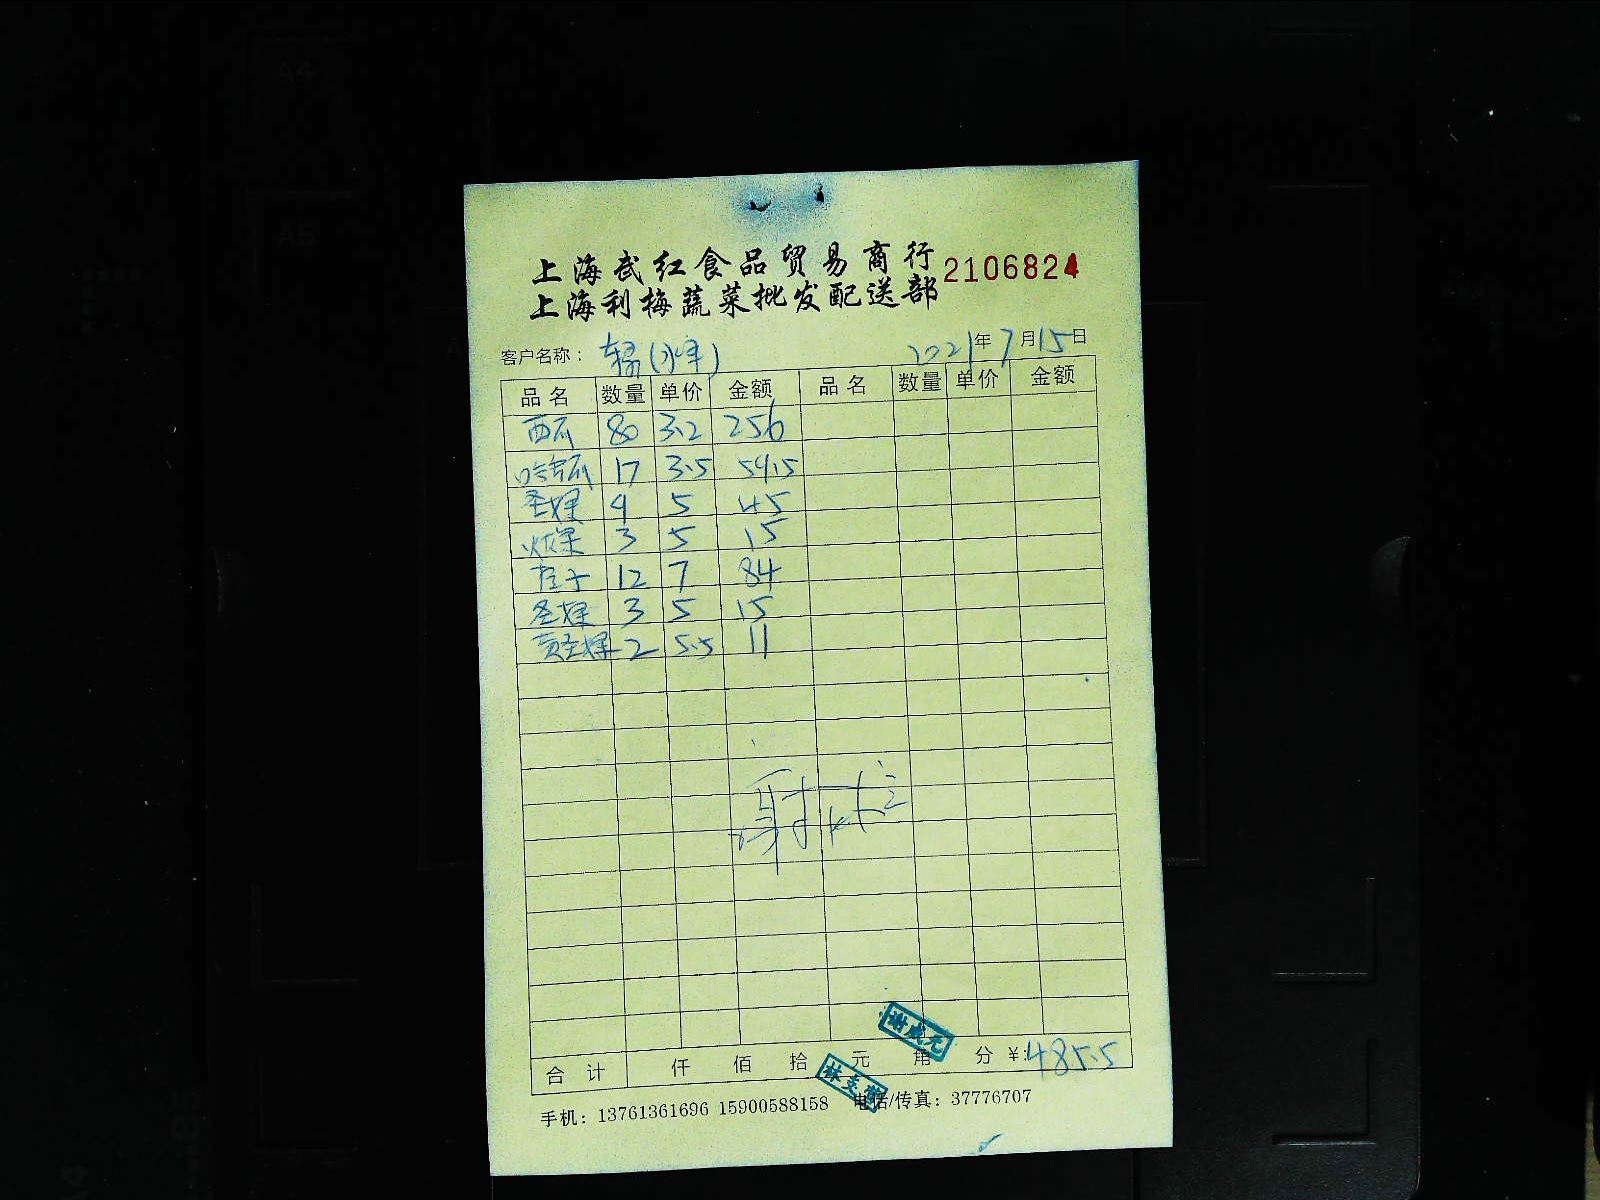 上海武红食品贸易商行
2106824
上海利梅蔬菜批发配送部
客户名称： 2021年7月15日
品名 数量 单价 金额 品名 数量 单价 金额
西瓜 80 3.2 256
哈密瓜 17 3.5 59.5
圣女果 9 5 45
火龙果 3 5 15
12 7 84
圣女果 3 5 15
黄圣女果 2 5.5 11
合计 仟 佰 拾 元 角 分 ¥：485.5
谢成元
手机：13761361696 15900588158 电话/传真：37776707